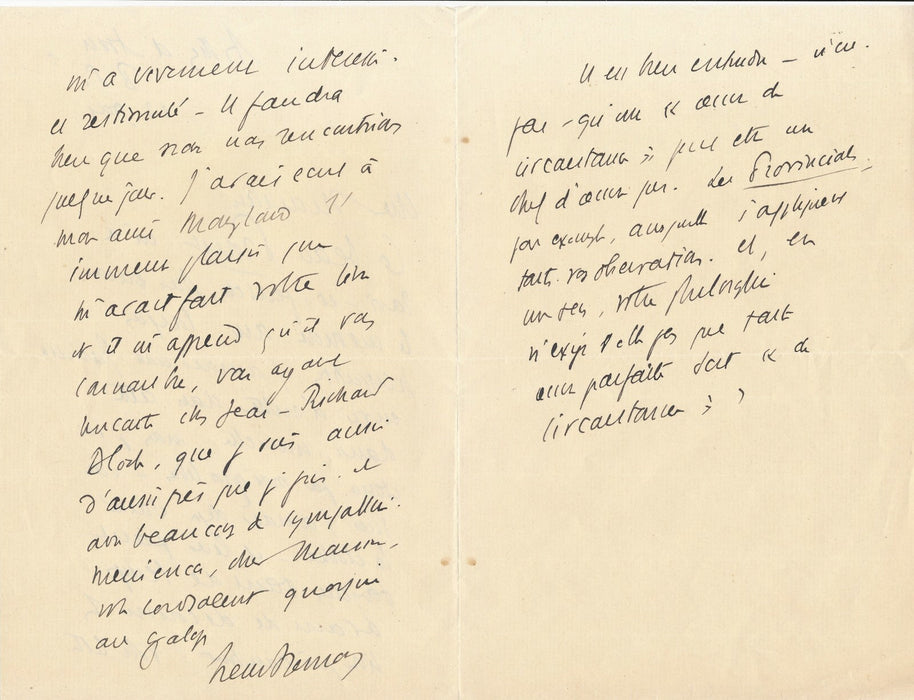 m'a vivement intéressé.
et restimulé – Il faudra
bien que nous nous rencontrions
quelque jour. J'avais écrit à
mon ami Monglond
plaisir que
m'avait fait votre livre
et il m'apprend qu'il vous
connaître, vous ayant
rencontré chez Jean-Richard
Bloch, que je suis aussi
d'aussi près que je puis. et
avec beaucoup de sympathie.
cher Monsieur,
cordialement quoique
au galop
Henri Bremond
Il est bien entendu – n'est-
pas – qu'une « œuvre de
circonstance » peut être un
chef d'œuvre pur. Les Provinciales
par exemple, auxquelles s'appliquent
toutes vos observations. Et, en
un sens, votre philosophie
n'exige t elle pas que toute
œuvre parfaite soit « de
circonstance » ?